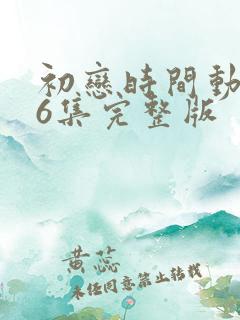 初戀時間動
6集完整版
黄蕊
未任同意禁止转载